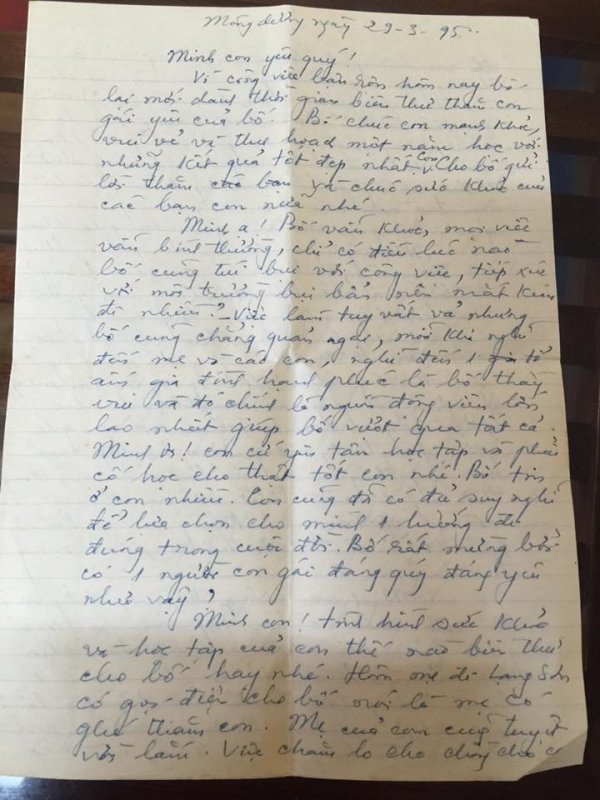 Mông dương ngày 29-3-95.
Minh con yêu quý!
Vì công việc bận rộn hôm nay bố
lại mới dành thời gian biên thư thăm con
gái yêu của bố. Bố chúc con mạnh khỏe,
vui vẻ và thu hoạch một năm học với
những kết quả tốt đẹp nhất. Con cho bố gửi
lời thăm các bạn và chúc sức khỏe của
các bạn con nữa nhé.
Minh ạ! Bố vẫn khỏe, mọi việc
vẫn bình thường, chỉ có điều lúc nào
bố cũng túi bụi với công việc, tiếp xúc
với môi trường bụi bẩn nên mắt kém
đi nhiều. Việc làm tuy vất vả nhưng
bố cũng chẳng quản ngại, mỗi khi nghĩ
đến mẹ và các con, nghĩ đến 1 tổ
ấm gia đình hạnh phúc là bố thấy
vui và đó chính là nguồn động viên lớn
lao nhất giúp bố vượt qua tất cả.
Minh ạ! con cứ yên tâm học tập và phải
cố học cho thật tốt con nhé. Bố tin
ở con nhiều. Con cũng đã có đủ suy nghĩ
để lựa chọn cho mình 1 hướng đi
đúng trong cuộc đời. Bố rất mừng bởi
có 1 người con gái đáng quý đáng yêu
như vậy.
Minh con! tình hình sức khỏe
và học tập của con thế nào biên thư
cho bố hay nhé. Hôm mẹ đi Lạng Sơn
có gọi điện cho bố nói là mẹ có
ghé thăm con. Mẹ của con cũng tuyệt
vời lắm. Việc chăm lo cho